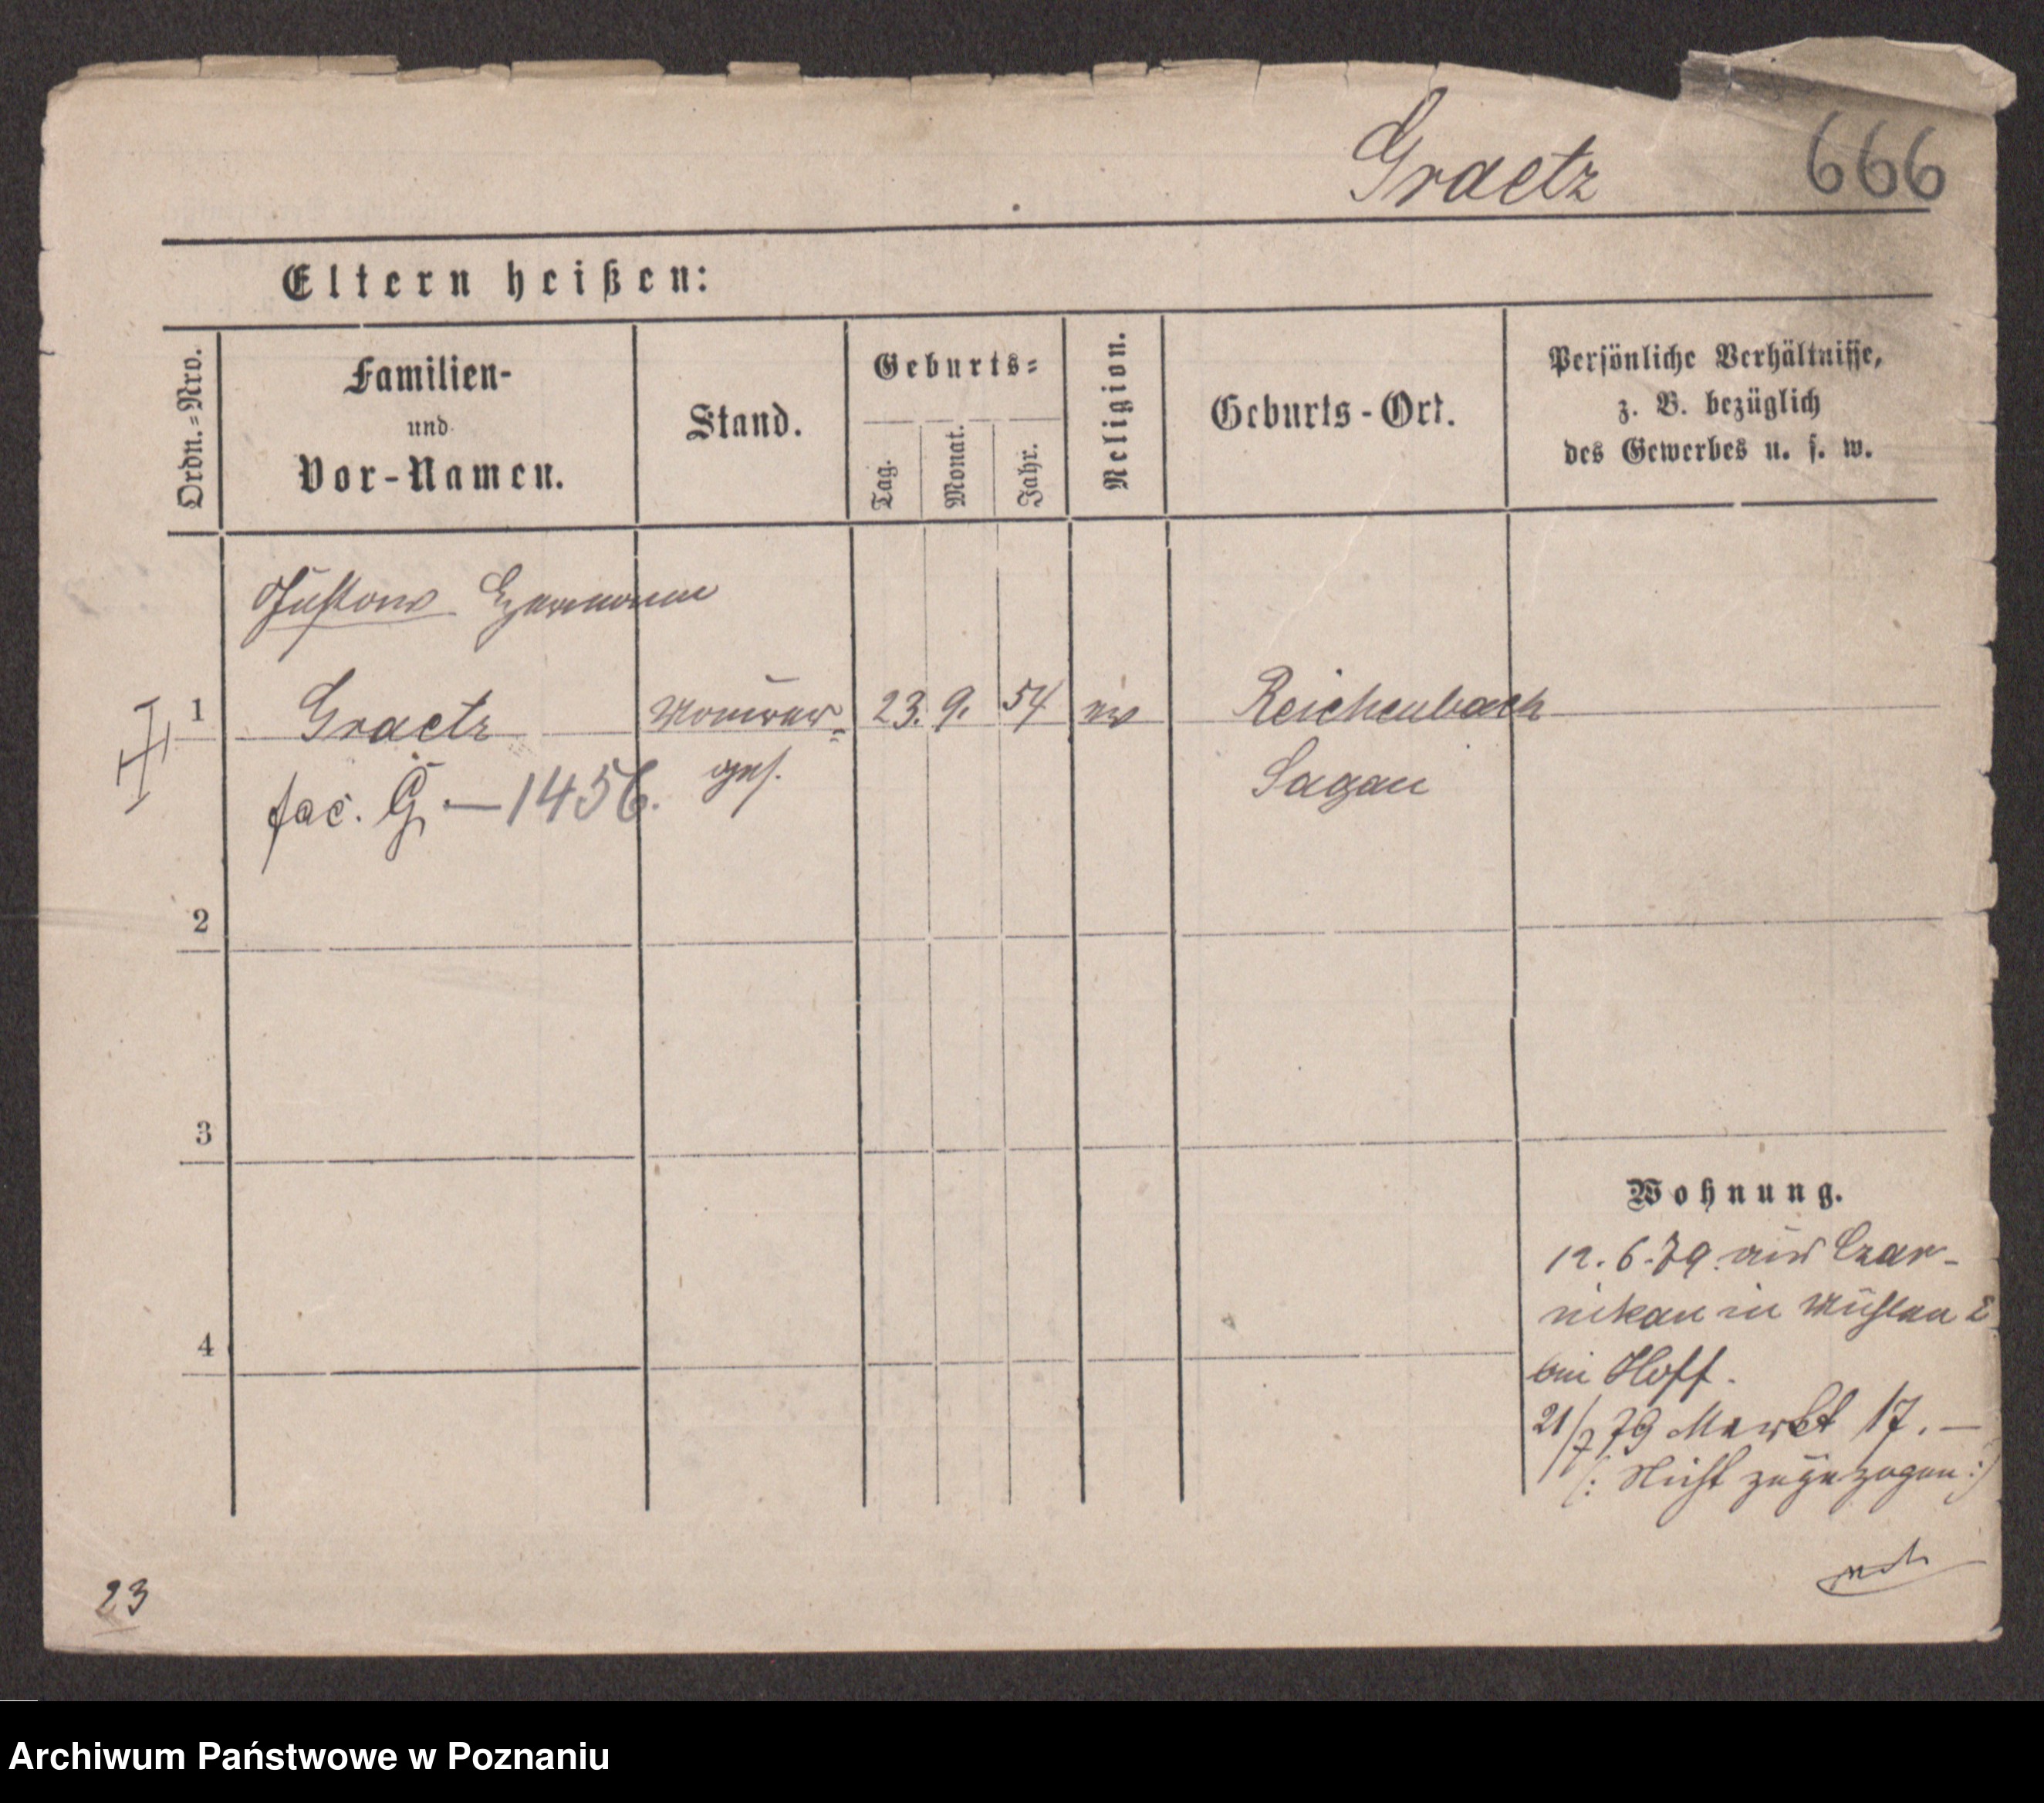 Graetz 666
Eltern heißen:
Ordn.=Nro.
Familien-
und
Vor-Namen.
Stand.
Geburts=
Tag.
Monat.
Jahr.
Religion.
Geburts-Ort.
Persönliche Verhältnisse,
z. B. bezüglich
des Gewerbes u. s. w.
Gustav Hermann
1 Graetz Maurer= 23. 9. 54 ev Reichenbach
fac. G. — 1456. ges. Sagan
2
3
4
Wohnung.
12. 6. 79. aus Czar-
nikau in Mühlen 2
bei Hoff.
21/7 79 Markt 17. —
(: Nicht zugezogen :)
23
Archiwum Państwowe w Poznaniu